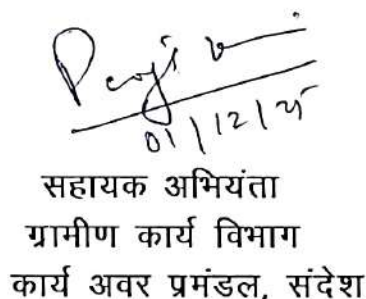 01/12/25
सहायक अभियंता
ग्रामीण कार्य विभाग
कार्य अवर प्रमंडल, संदेश